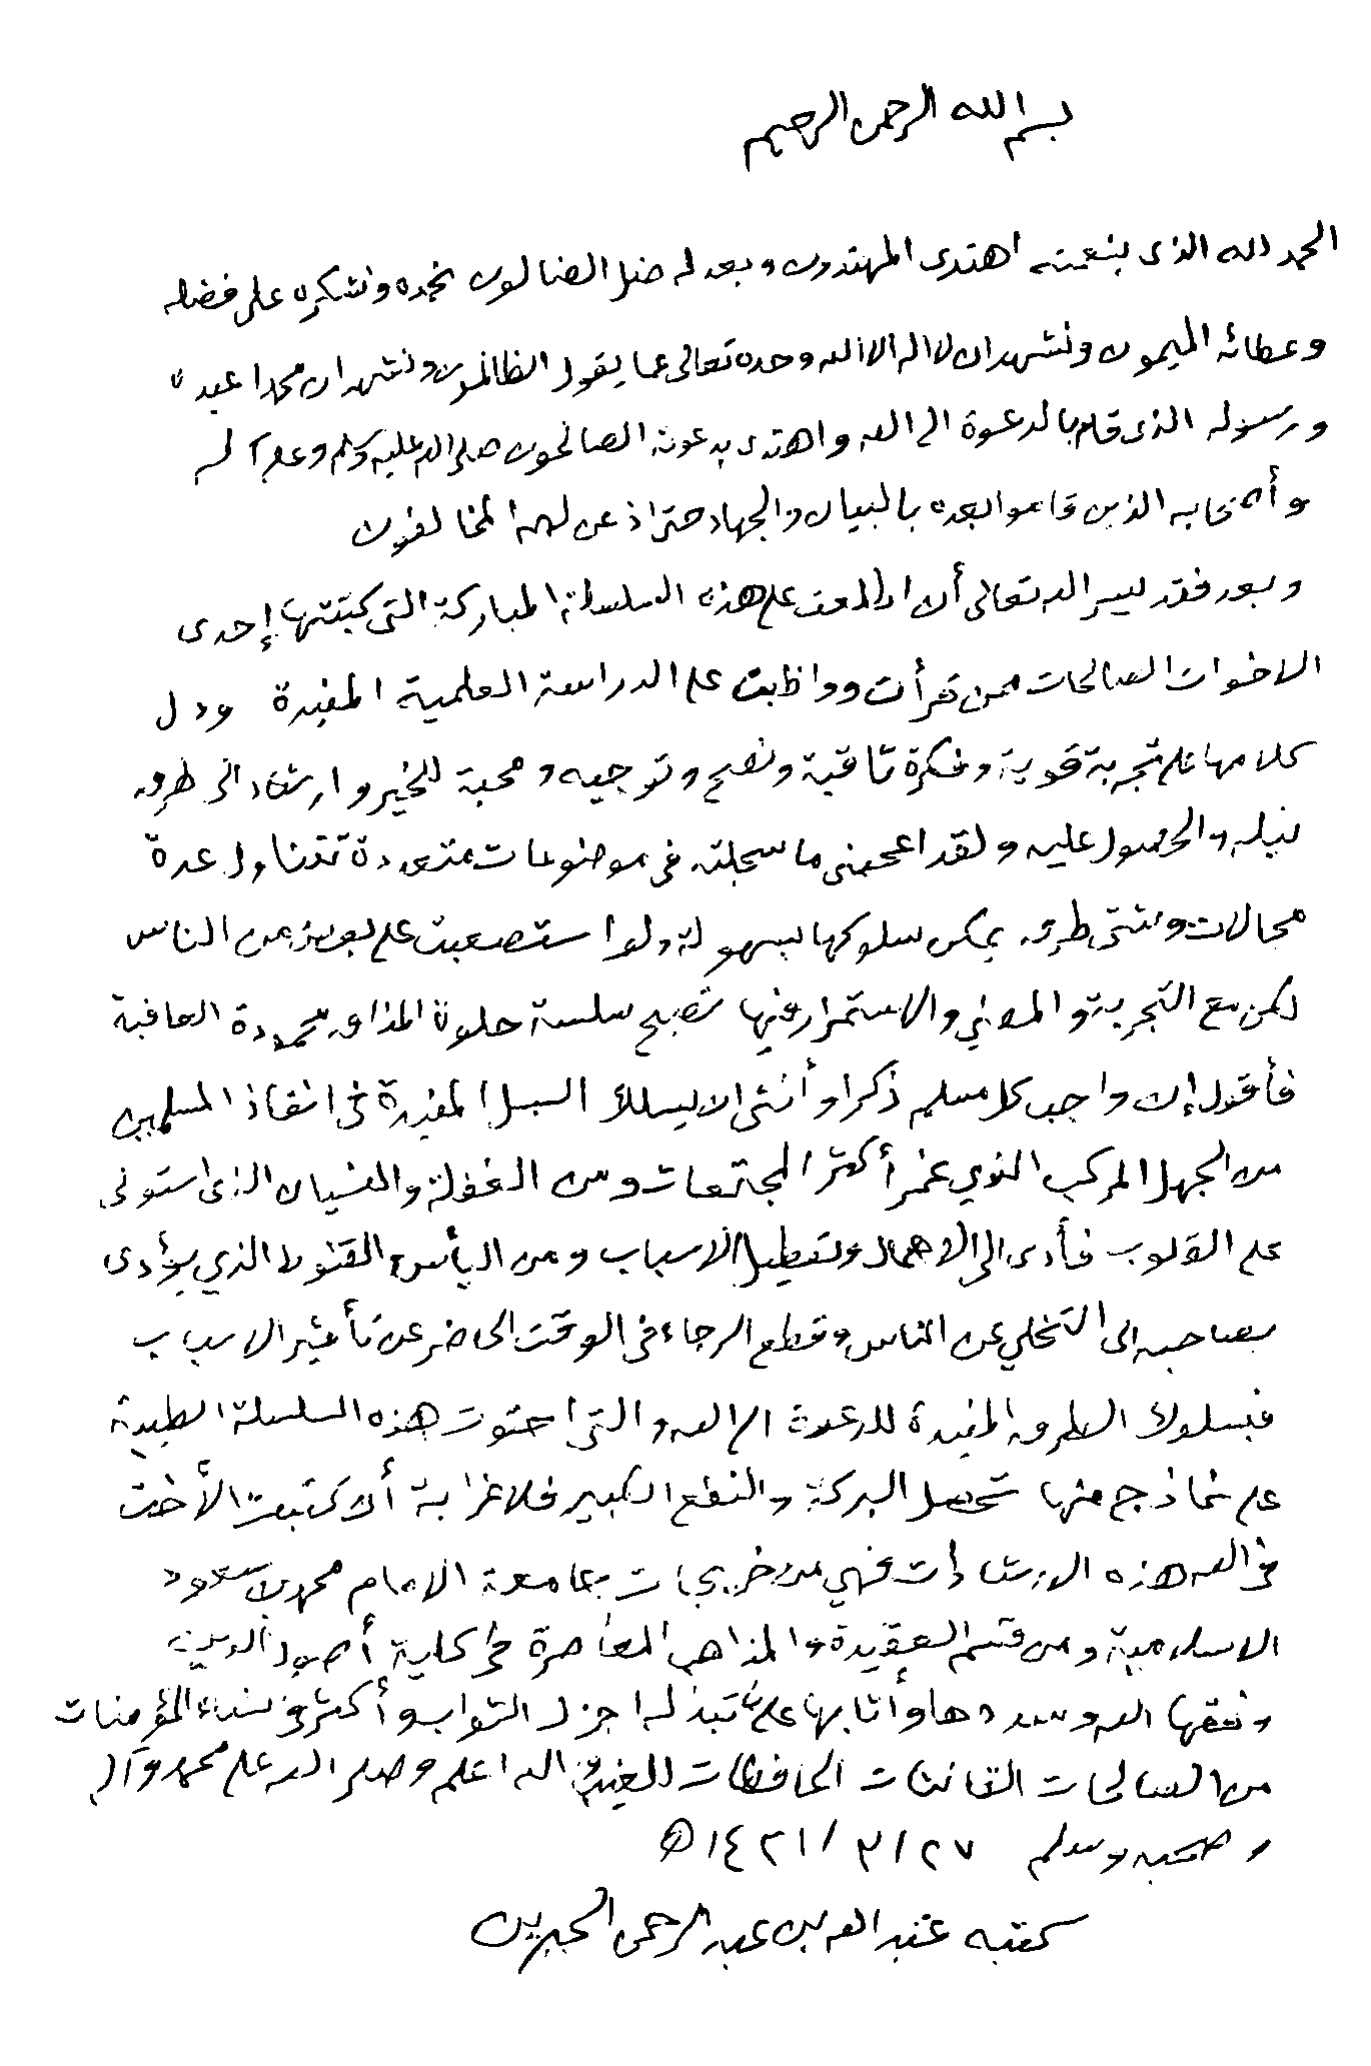 بسم الله الرحمن الرحيم
الحمد لله الذى بنعمته اهتدى المهتدون وبعدله ضل الضالون نحمده ونشكره على فضله
وعطائه الميمون ونشهد ان لا اله الا الله وحده تعالى عما يقول الظالمون ونشهد ان محمدا عبده
ورسوله الذى قام بالدعوة الى الله واهتدى بدعوته الصالحون صلى الله عليه وسلم وعلى آله
وأصحابه الذين قاموا بعده بالبيان والجهاد حتى اذعن لهم المخالفون
وبعد فقد يسر الله تعالى أن اطلعت على هذه السلسلة المباركة التى كتبتها إحدى
الاخوات الصالحات ممن قرأت وواظبت على الدراسة العلمية المفيدة ودل
كلامها على تجربة قوية وفكرة ثاقبة ونصح وتوجيه ومحبة للخير وارشاد الى طرق
نيله والحصول عليه ولقد اعجبنى ما سجلته فى موضوعات متعددة تتناول عدة
مجالات وشتى طرق يمكن سلوكها بسهولة ولو استصعبت على بعض من الناس
لكن مع التجربة والمضي والاستمرار فيها تصبح سلسة حلوة المذاق محمودة العاقبة
فأقول إن واجب كل مسلم ذكرا وأنثى ان يسلك السبل المفيدة فى انقاذ المسلمين
من الجهل المركب الذي غمر أكثر المجتمعات ومن الغفلة والنسيان الذى استولى
على القلوب فأدى الى الاهمال وتعطيل الاسباب ومن اليأس والقنوط الذي يؤدى
بصاحبه الى التخلي عن الناس وقطع الرجاء فى الوقت الحاضر عن تأثير الاسباب
فبسلوك الطرق المفيدة للدعوة الى الله والتى احتوت هذه السلسلة الطيبة
على نماذج منها تحصل البركة والنفع الكبير فلا غرابة أن كتبت الأخت
فى الله هذه الارشادات فهي من خريجات جامعة الامام محمد بن سعود
الاسلامية ومن قسم العقيدة والمذاهب المعاصرة فى كلية أصول الدين
وفقها الله وسددها وأثابها على ما تبذله اجزل الثواب وأكثر فى نساء المؤمنات
من الصالحات القانتات الحافظات للغيب والله اعلم وصلى الله على محمد وآله
وصحبه وسلم ٢٧ /٣ /١٤٢١هـ
كتبه عبد الله بن عبد الرحمن الجبرين